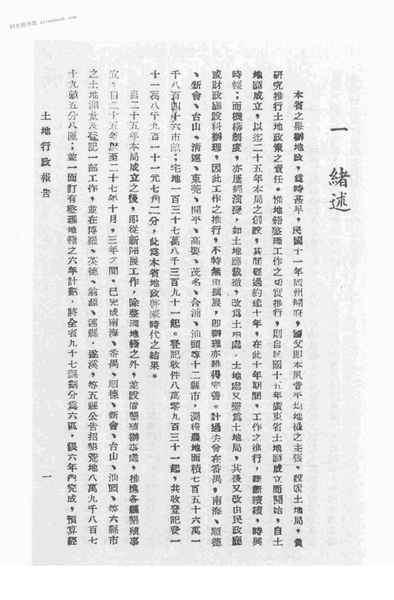 一 緒述
本省之舉辦地政，爲時甚早，民國十一年廣州開府，國父即本夙昔平均地權之主張，設置土地局，負
研究推行土地政策之責任。惟地籍整理工作之切實推行，則自民國十五年廣東省土地廳成立而開始，自土
地廳成立，以迄二十五年本局之創設，其間經過約達十年，在此十年期間，工作之推行，斷斷續續，時興
時輟；而機構制度，亦屢經演變，如土地廳裁撤，改爲土地處，土地處又變爲土地局，其後又改由民政廳
或財政廳設科辦理，因此工作之推行，不特無由擴展，即辦理亦難得完善。計過去曾在番禺，南海、順德
、新會、台山、清遠、東莞、開平、高要、茂名、合浦、汕頭等十二縣市，測竣農地面積七百五十六萬一
千八百四十六市畝；宅地一百三十七萬八千三百九十一起。登記收件八萬零九百三十一起，共收登記費一
十一萬八千九百一十一元七角二分，此爲本省地政 時代之結果。
自二十五年本局成立之後，即從新開展工作，除整理地籍之外，並設 墾殖辦事處，推進各縣墾殖事
宜，自二十五年 至二十七年十月，三年之間，已完成南海、番禺、順德、新會、台山、汕頭、等六縣市
之土地測量及登記一部工作，並在博羅、英德、翁源、連縣、遂溪、等五縣公告招墾荒地八萬九千八百七
十九畝五分八厘；並一面訂有整理地籍之六年計劃，將全省九十七縣劃分爲六區，假六年內完成，預算經
土地行政報告
一